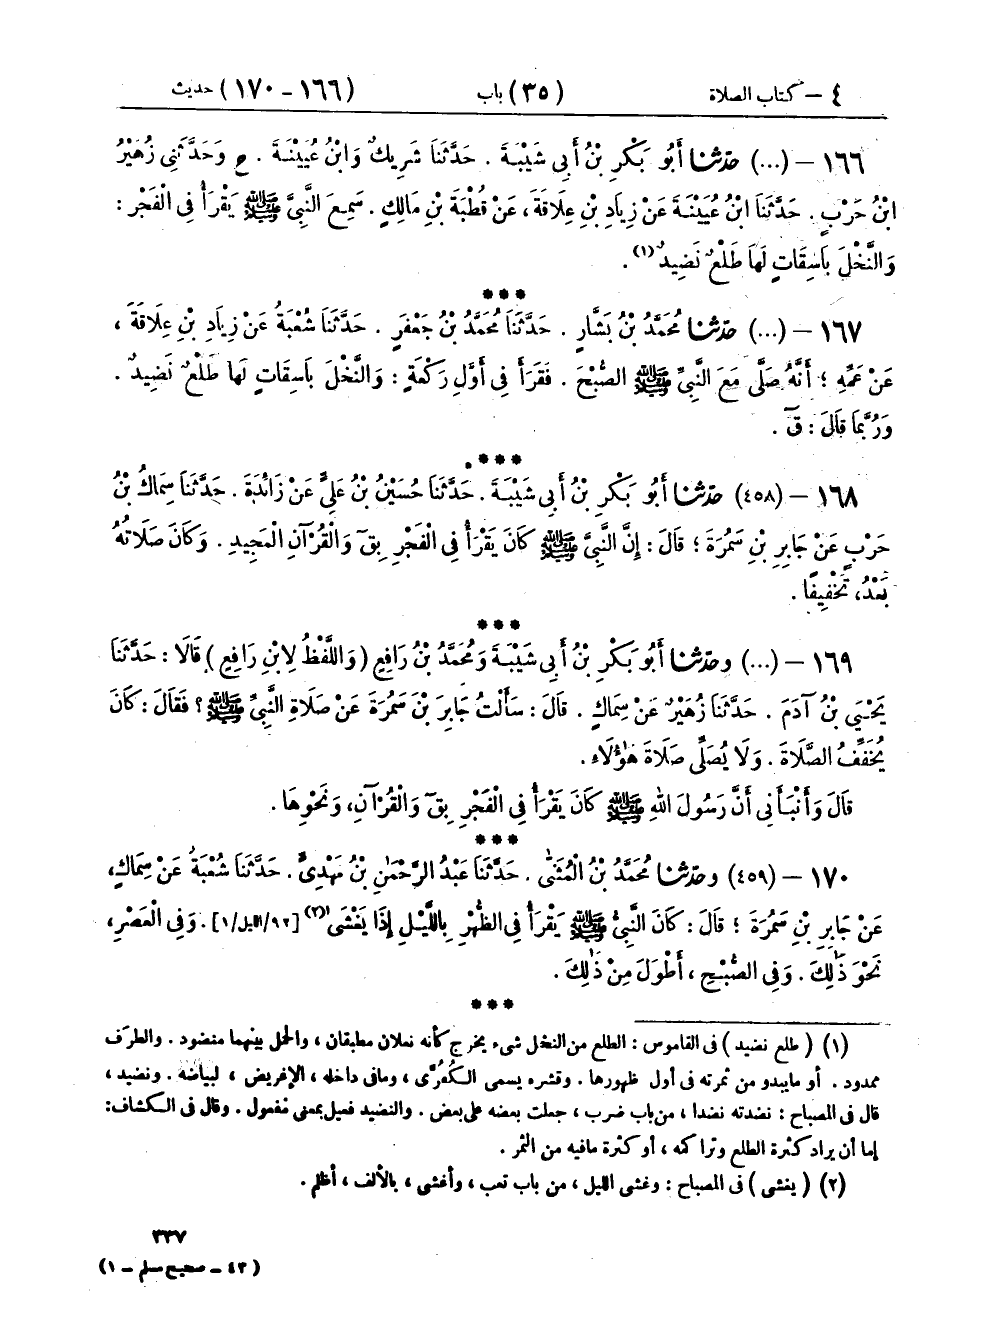 ٤ – كتاب الصلاة (٣٥) باب (١٦٦ – ١٧٠) حديث
١٦٦ – (...) حدّثنا أَبُو بَكْرِ بْنُ أَبِي شَيْبَةَ . حَدَّثَنَا شَرِيكٌ وَابْنُ عُيَيْنَةَ . ح وَحَدَّثَنِي زُهَيْرُ
ابْنُ حَرْبٍ . حَدَّثَنَا ابْنُ عُيَيْنَةَ عَنْ زِيَادِ بْنِ عِلَاقَةَ ، عَنْ قُطْبَةَ بْنِ مَالِكٍ . سَمِعَ النَّبِيَّ ﷺ يَقْرَأُ فِي الْفَجْرِ :
وَالنَّخْلَ بَاسِقَاتٍ لَهَا طَلْعٌ نَضِيدٌ (١) .
***
١٦٧ – (...) حدّثنا مُحَمَّدُ بْنُ بَشَّارٍ . حَدَّثَنَا مُحَمَّدُ بْنُ جَعْفَرٍ . حَدَّثَنَا شُعْبَةُ عَنْ زِيَادِ بْنِ عِلَاقَةَ ،
عَنْ عَمِّهِ ؛ أَنَّهُ صَلَّى مَعَ النَّبِيِّ ﷺ الصُّبْحَ . فَقَرَأَ فِي أَوَّلِ رَكْعَةٍ : وَالنَّخْلَ بَاسِقَاتٍ لَهَا طَلْعٌ نَضِيدٌ .
وَرُبَّمَا قَالَ : قٓ .
***
١٦٨ – (٤٥٨) حدّثنا أَبُو بَكْرِ بْنُ أَبِي شَيْبَةَ . حَدَّثَنَا حُسَيْنُ بْنُ عَلِيٍّ عَنْ زَائِدَةَ . حَدَّثَنَا سِمَاكُ بْنُ
حَرْبٍ عَنْ جَابِرِ بْنِ سَمُرَةَ ؛ قَالَ : إِنَّ النَّبِيَّ ﷺ كَانَ يَقْرَأُ فِي الْفَجْرِ بِقٓ وَالْقُرْآنِ الْمَجِيدِ . وَكَانَ صَلَاتُهُ
بَعْدُ، تَخْفِيفًا .
***
١٦٩ – (...) وحدّثنا أَبُو بَكْرِ بْنُ أَبِي شَيْبَةَ وَمُحَمَّدُ بْنُ رَافِعٍ (وَاللَّفْظُ لِابْنِ رَافِعٍ) قَالَا : حَدَّثَنَا
يَحْيَى بْنُ آدَمَ . حَدَّثَنَا زُهَيْرٌ عَنْ سِمَاكٍ . قَالَ : سَأَلْتُ جَابِرَ بْنَ سَمُرَةَ عَنْ صَلَاةِ النَّبِيِّ ﷺ ؟ فَقَالَ : كَانَ
يُخَفِّفُ الصَّلَاةَ . وَلَا يُصَلِّي صَلَاةَ هٰؤُلَاءِ .
قَالَ وَأَنْبَأَنِي أَنَّ رَسُولَ اللهِ ﷺ كَانَ يَقْرَأُ فِي الْفَجْرِ بِقٓ وَالْقُرْآنِ، وَنَحْوِهَا .
***
١٧٠ – (٤٥٩) وحدّثنا مُحَمَّدُ بْنُ الْمُثَنَّى . حَدَّثَنَا عَبْدُ الرَّحْمٰنِ بْنُ مَهْدِيٍّ . حَدَّثَنَا شُعْبَةُ عَنْ سِمَاكٍ،
عَنْ جَابِرِ بْنِ سَمُرَةَ ؛ قَالَ : كَانَ النَّبِيُّ ﷺ يَقْرَأُ فِي الظُّهْرِ بِاللَّيْلِ إِذَا يَغْشَى (٢) [٩٢/الليل/١] . وَفِي الْعَصْرِ،
نَحْوَ ذٰلِكَ . وَفِي الصُّبْحِ ، أَطْوَلَ مِنْ ذٰلِكَ .
***
(١) (طلع نضيد) في القاموس : الطلع من النخل شيء يخرج كأنه نعلان مطبقان ، والحمل بينهما منضود . والطرف
محدود . أو مايبدو من ثمرته في أول ظهورها . وقشره يسمى الكُفُرَّى ، ومافى داخله ، الإغريض ، لبياضه . ونضيد ،
قال في المصباح : نضدته نضدا ، من باب ضرب ، جعلت بعضه على بعض . والنضيد فعيل بمعنى مفعول . وقال في الكشاف:
إما أن يراد كثرة الطلع وتراكمه ، أو كثرة مافيه من الثمر .
(٢) (يغشى) في المصباح : وغشى الليل ، من باب تعب ، وأغشى ، بالألف ، أظلم .
٣٣٧
(٤٣ – صحيح مسلم – ١)